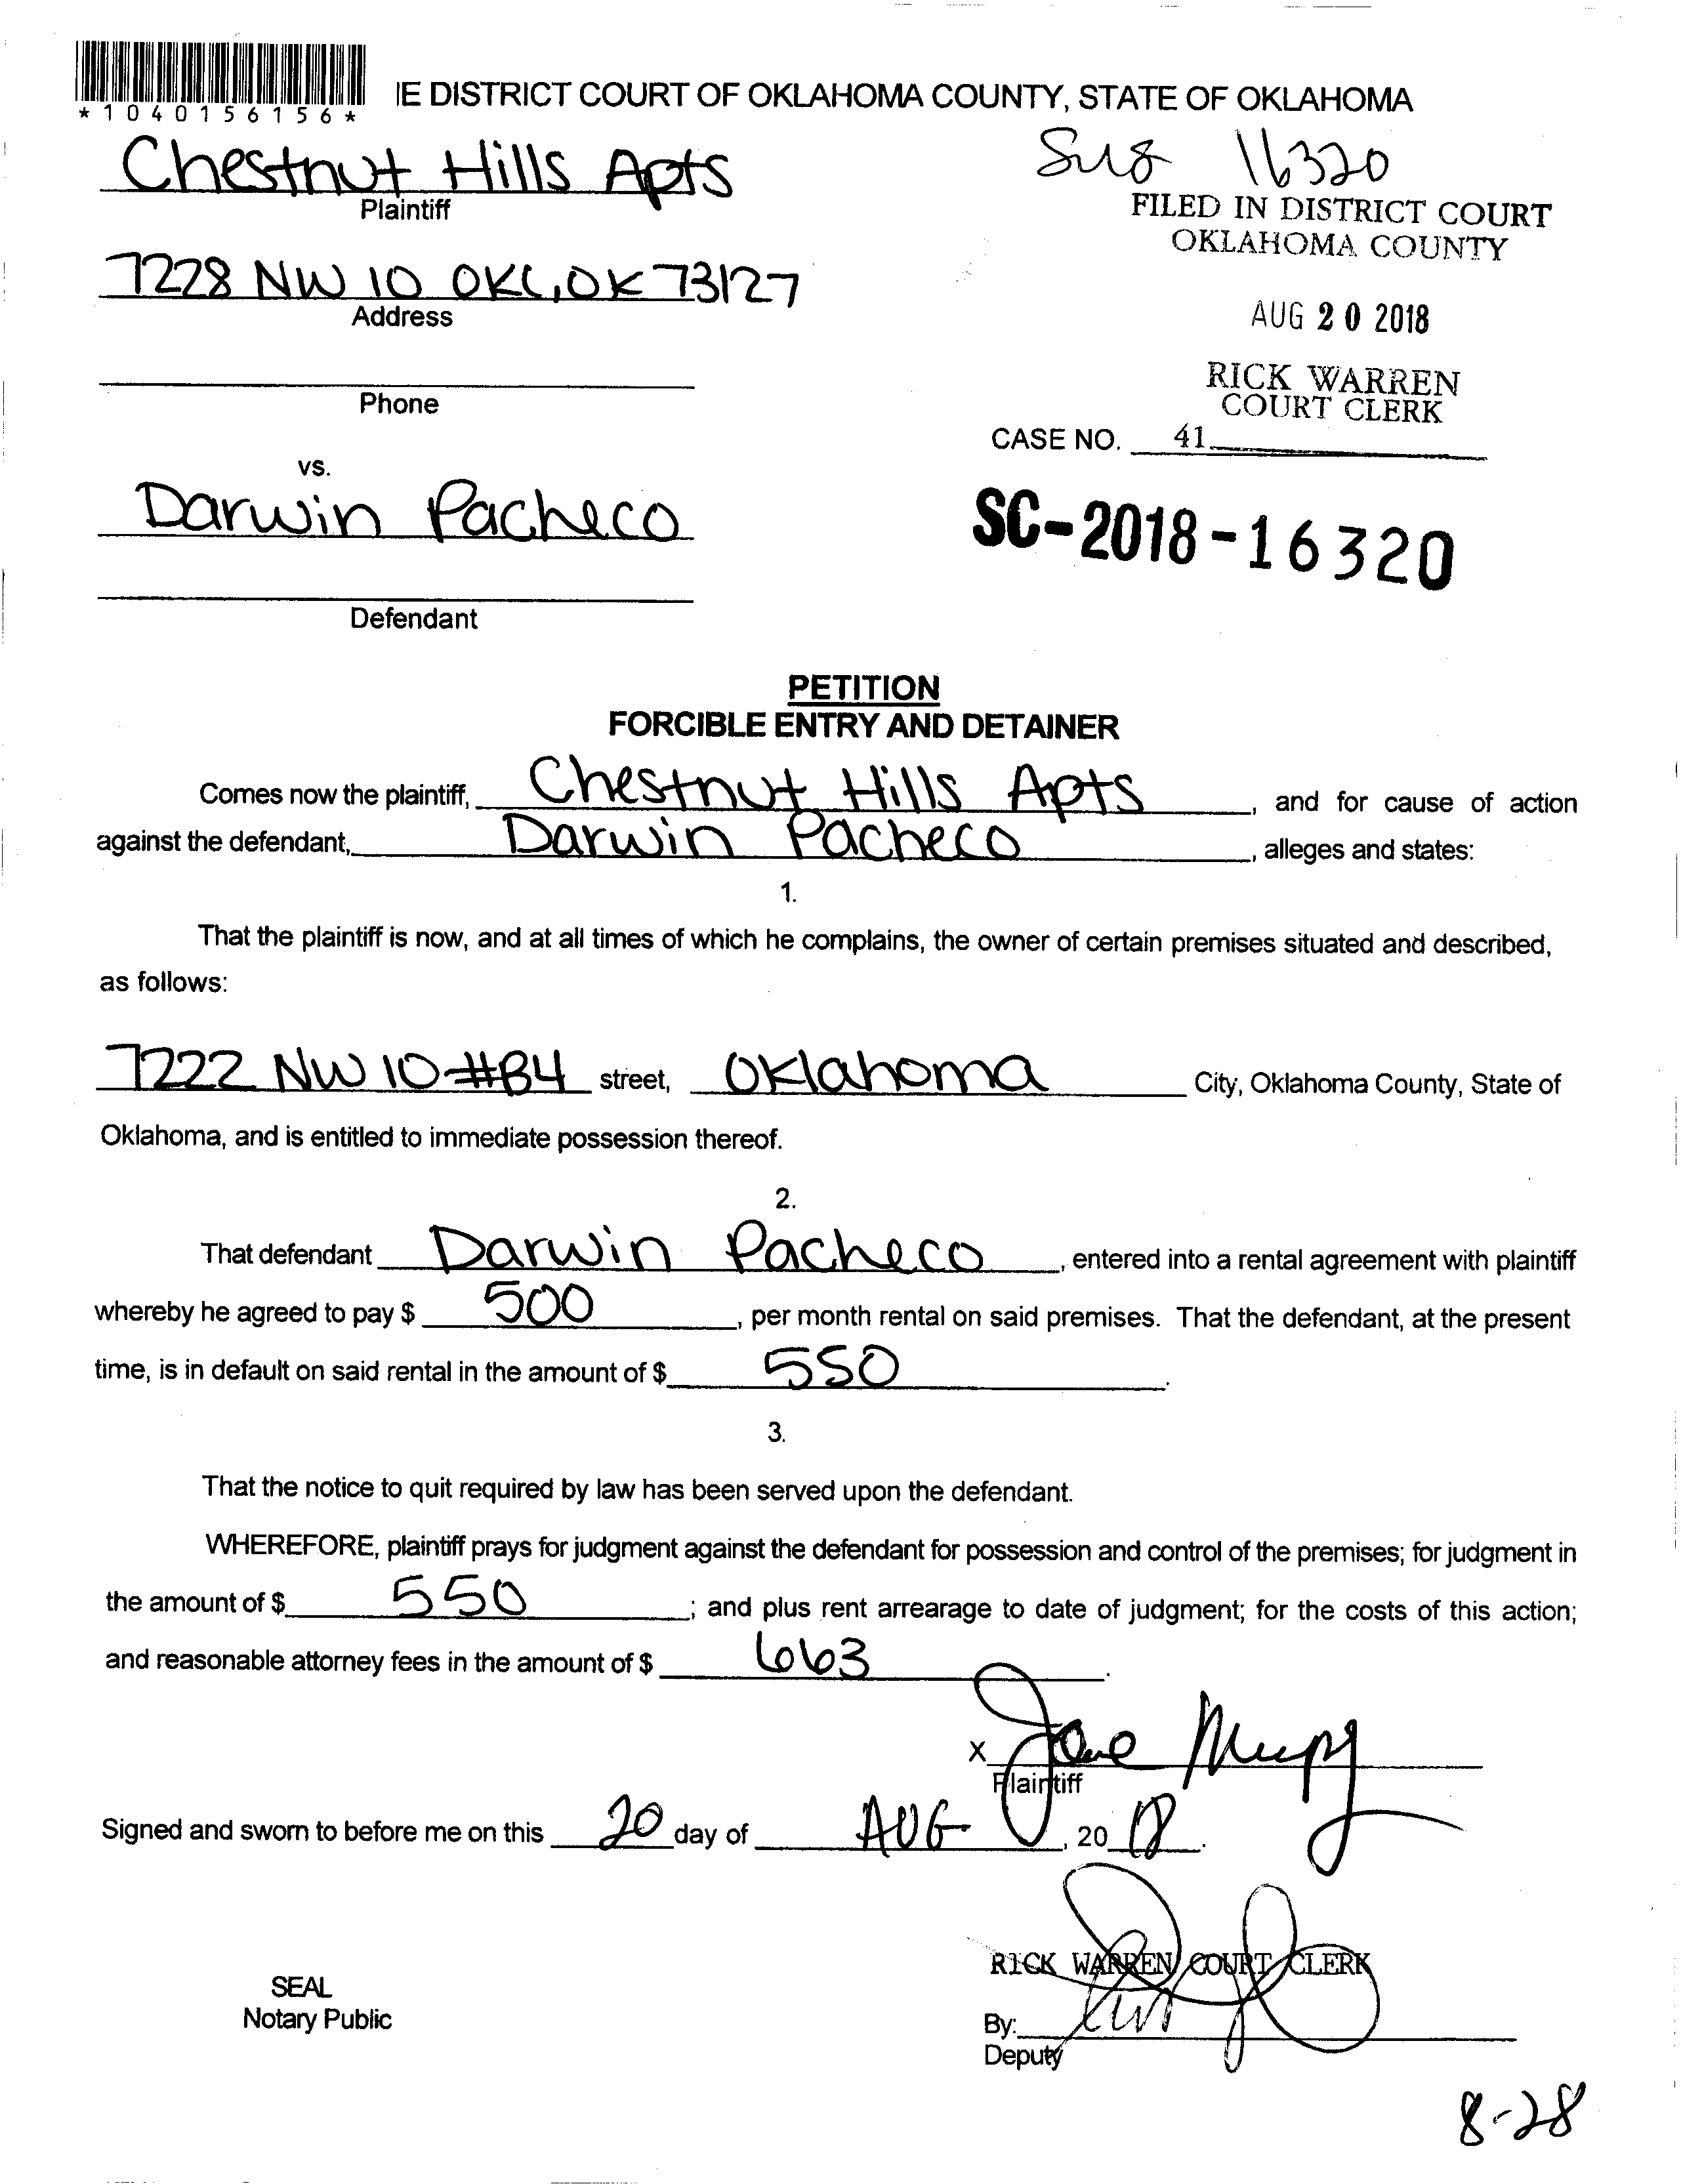 *1040156156*
IE DISTRICT COURT OF OKLAHOMA COUNTY, STATE OF OKLAHOMA
Chestnut Hills Apts
16320
Plaintiff
FILED IN DISTRICT COURT
OKLAHOMA COUNTY
7228 NW 10 OKC, OK 73127
Address
AUG 20 2018
RICK WARREN
COURT CLERK
Phone
CASE NO. 41
vs.
Darwin Pacheco
SC-2018-16320
Defendant
PETITION
FORCIBLE ENTRY AND DETAINER
Comes now the plaintiff, Chestnut Hills Apts, and for cause of action
against the defendant, Darwin Pacheco, alleges and states:
1.
That the plaintiff is now, and at all times of which he complains, the owner of certain premises situated and described,
as follows:
7222 NW 10 #B4 street, Oklahoma City, Oklahoma County, State of
Oklahoma, and is entitled to immediate possession thereof.
2.
That defendant Darwin Pacheco, entered into a rental agreement with plaintiff
whereby he agreed to pay $ 500, per month rental on said premises. That the defendant, at the present
time, is in default on said rental in the amount of $ 550.
3.
That the notice to quit required by law has been served upon the defendant.
WHEREFORE, plaintiff prays for judgment against the defendant for possession and control of the premises; for judgment in
the amount of $ 550; and plus rent arrearage to date of judgment; for the costs of this action;
and reasonable attorney fees in the amount of $ 663.
X
Plaintiff
Signed and sworn to before me on this 20 day of AUG, 20 18.
RICK WARREN COURT CLERK
SEAL
Notary Public
By:
Deputy
8-28